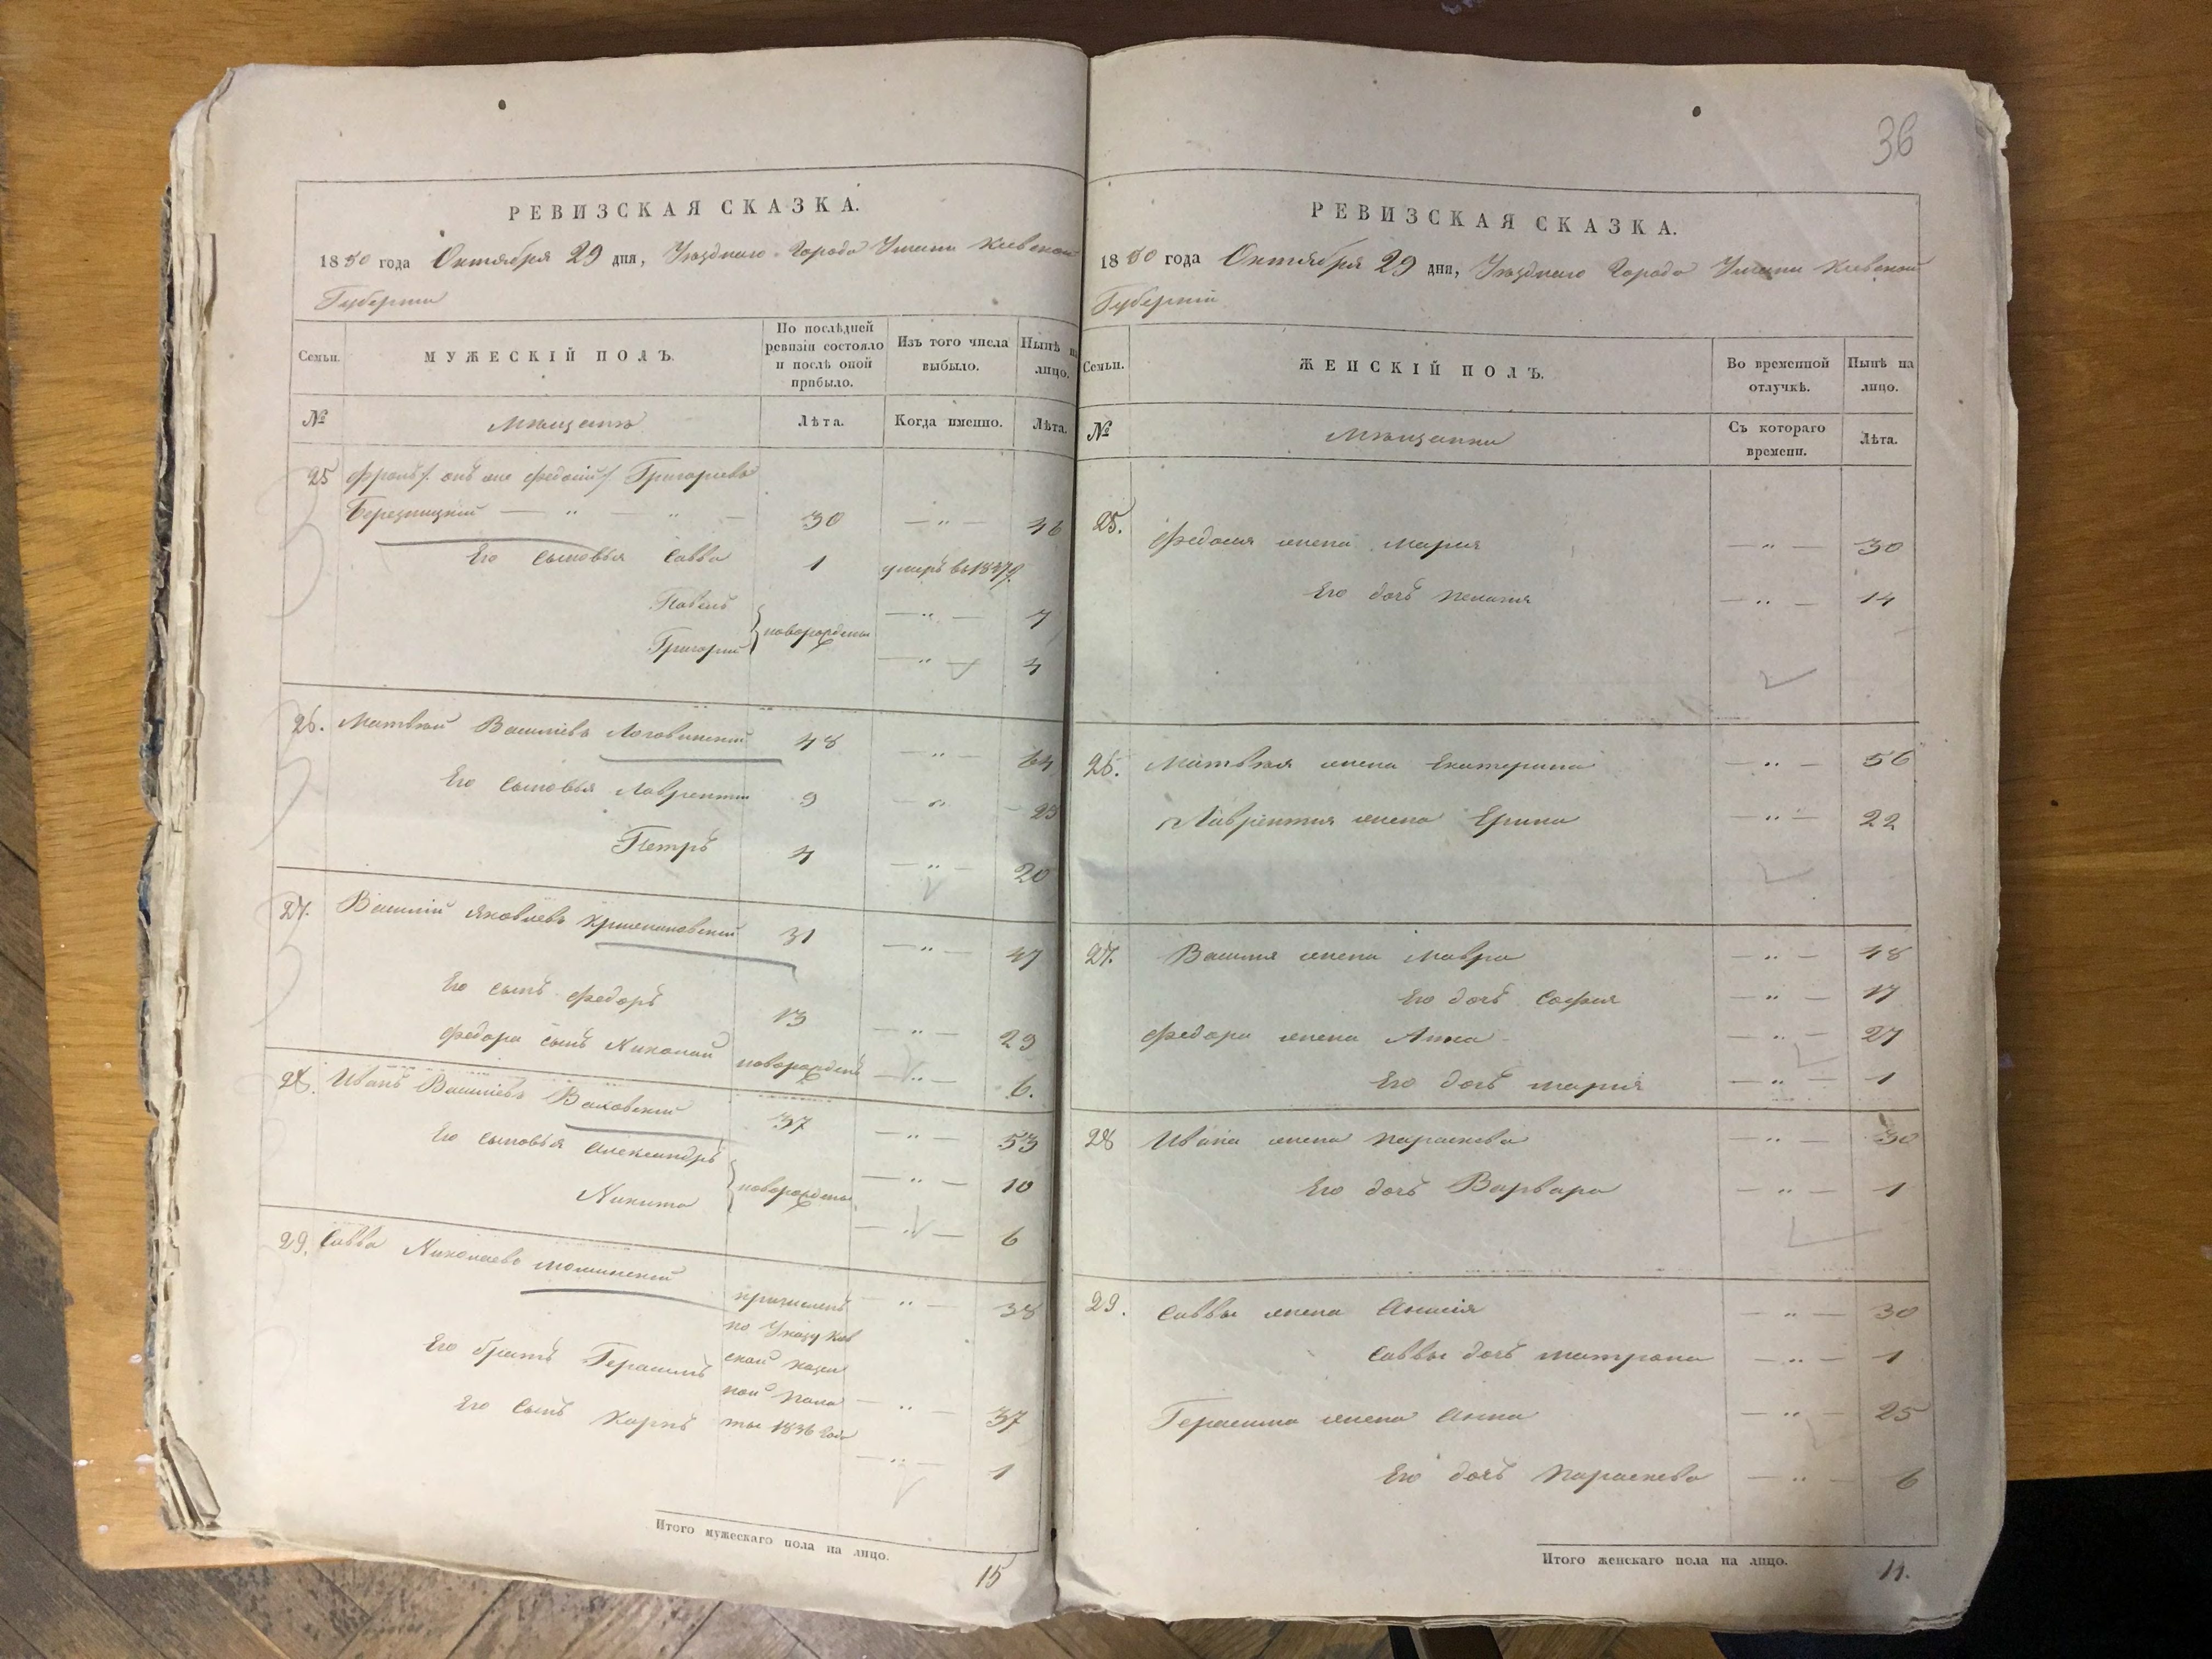 РЕВИЗСКАЯ СКАЗКА.
1850 года Октября 29 дня, Уѣзднаго Города Умани Кіевской
Губерніи
Семьи.
МУЖЕСКІЙ ПОЛЪ.
По послѣдней ревизіи состояло и послѣ оной прибыло.
Изъ того числа выбыло.
Нынѣ на лицо.
№
Мѣщане
Лѣта.
Когда именно.
Лѣта.
25 Фролъ /: онъ же Федосій / Григорьевъ
Березницкій — " — " — 30 — " — 46
Его сыновья Савва 1 умеръ въ 1837 г.
Павелъ новорождены — " — 7
Григорій — " — 4
26. Матвѣй Васильевъ Логовинскій 48 — " — 64
Его сыновья Лаврентій 9 — " — 25
Петръ 4 — " — 20
27. Василій Яковлевъ 31 — " — 47
Его сынъ Федоръ 13 — " — 29
Федора сынъ Николай новорожденъ — " — 6.
28. Иванъ Васильевъ Ваковскій 37 — " — 53
Его сыновья Александръ новорождены — " — 10
Никита — " — 6
29. Савва Николаевъ Мошинскій причисленъ — " — 38
по Указу Кіев
Его братъ Герасимъ ской Казен
ной Пала — " — 37
Его сынъ Карпъ ты 1836 года
— " — 1
Итого мужескаго пола на лицо.
15
36
РЕВИЗСКАЯ СКАЗКА.
1850 года Октября 29 дня, Уѣзднаго Города Умани Кіевской
Губерніи
Семьи.
ЖЕНСКІЙ ПОЛЪ.
Во временной отлучкѣ.
Нынѣ на лицо.
№
Мѣщанки
Съ котораго времени.
Лѣта.
25. Федосія жена Мария — " — 30
Его дочь — " — 14
26. Матвѣя жена Екатерина — " — 56
Лаврентія жена Ерина — " — 22
27. Василія жена Мавра — " — 48
Его дочь Софія — " — 17
Федора жена Анна — " — 27
Его дочь Марія — " — 1
28 Ивана жена Параскева — " 30
Его дочь Варвара — " — 1
29. Саввы жена Анисія — " — 30
Саввы дочь Матрона — " — 1
Герасима жена Анна — " — 25
Его дочь Параскева — " — 6
Итого женскаго пола на лицо.
14.